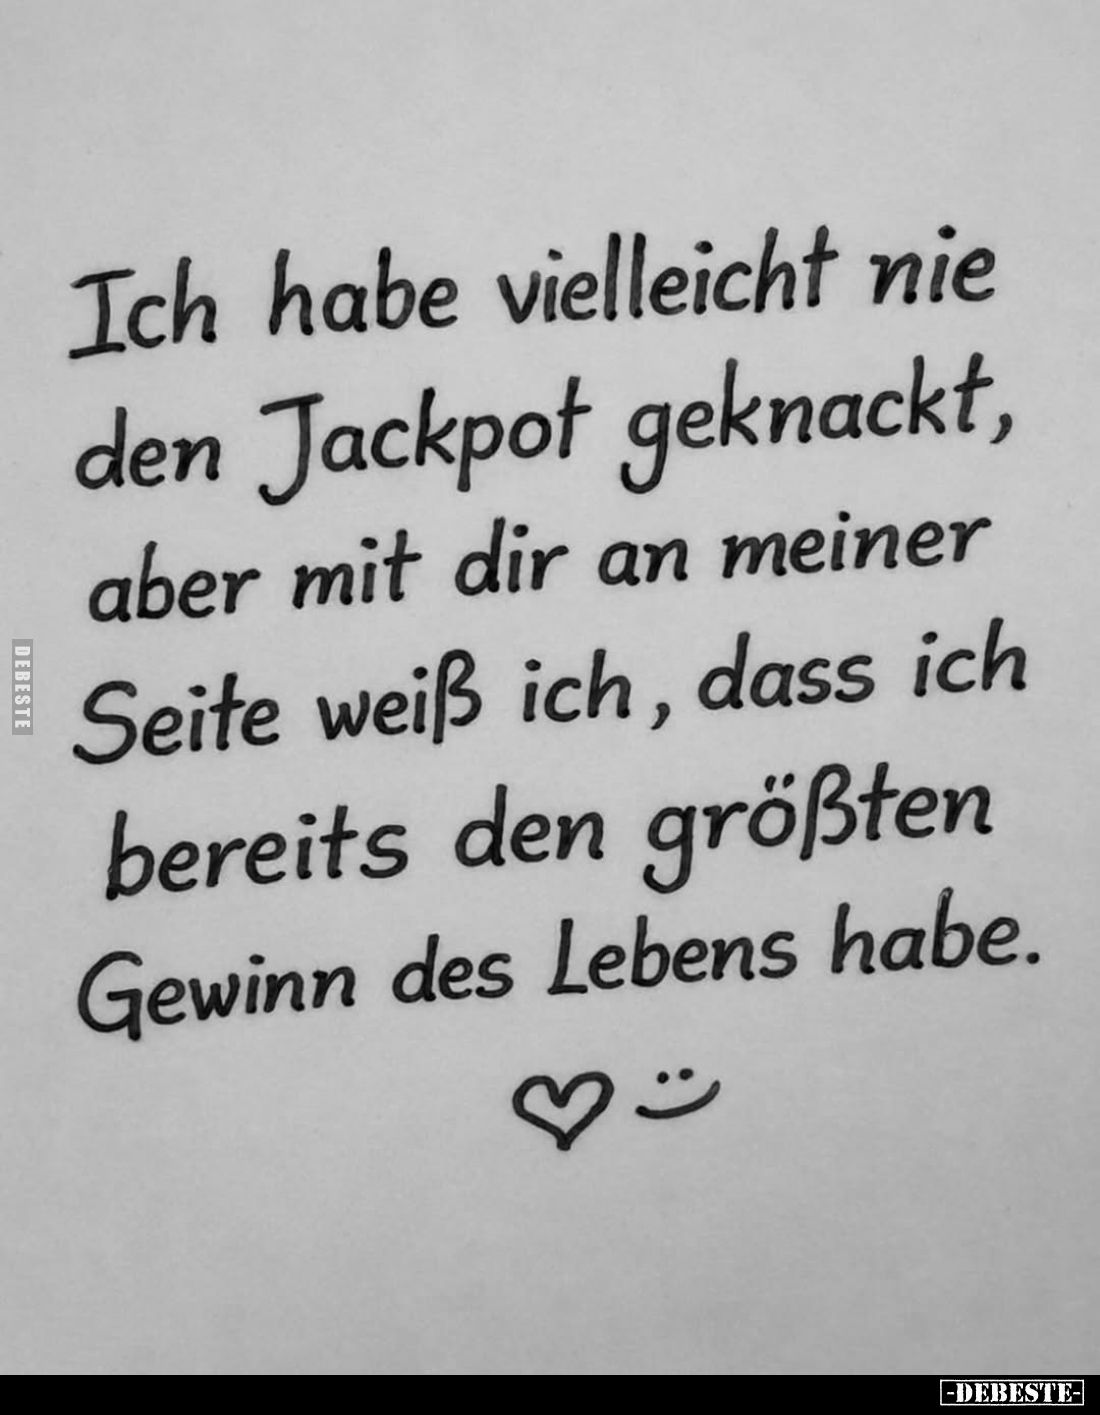 Ich habe vielleicht nie
den Jackpot geknackt,
aber mit dir an meiner
Seite weiß ich, dass ich
bereits den größten
Gewinn des Lebens habe.
DEBESTE
-DEBESTE-